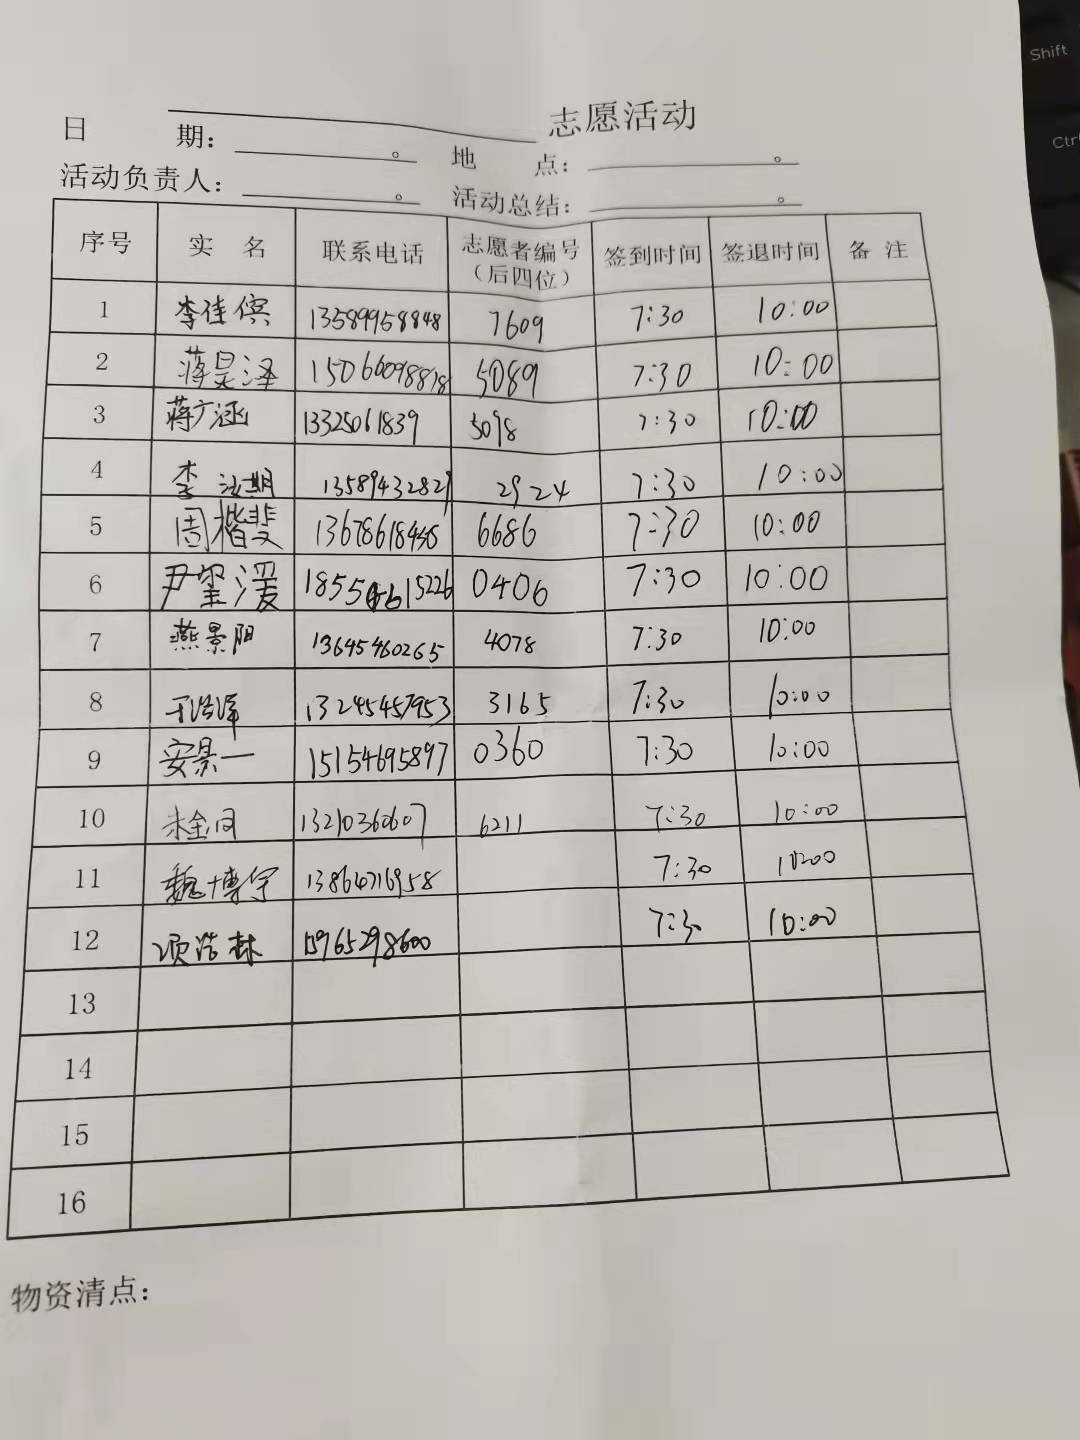 志愿活动
日 期： 。 地 点： 。
活动负责人： 。 活动总结： 。
序号 实 名 联系电话 志愿者编号（后四位） 签到时间 签退时间 备 注
1 李佳傧 13589958848 7609 7:30 10:00
2 蒋昊泽 15066098878 5089 7:30 10:00
3 蒋广涵 13325061839 5098 7:30 10:00
4 李 期 13589432829 2924 7:30 10:00
5 周楷斐 13678618448 6686 7:30 10:00
6 尹 湲 0406 7:30 10:00
7 燕景阳 13645460265 4078 7:30 10:00
8 于浩泽 13245457953 3165 7:30 10:00
9 安景一 15154695897 0360 7:30 10:00
10 13210360607 6211 7:30 10:00
11 魏博宇 13864716958 7:30 10:00
12 项浩林 15965298600 7:30 10:00
13
14
15
16
物资清点：
Shift
Ctrl